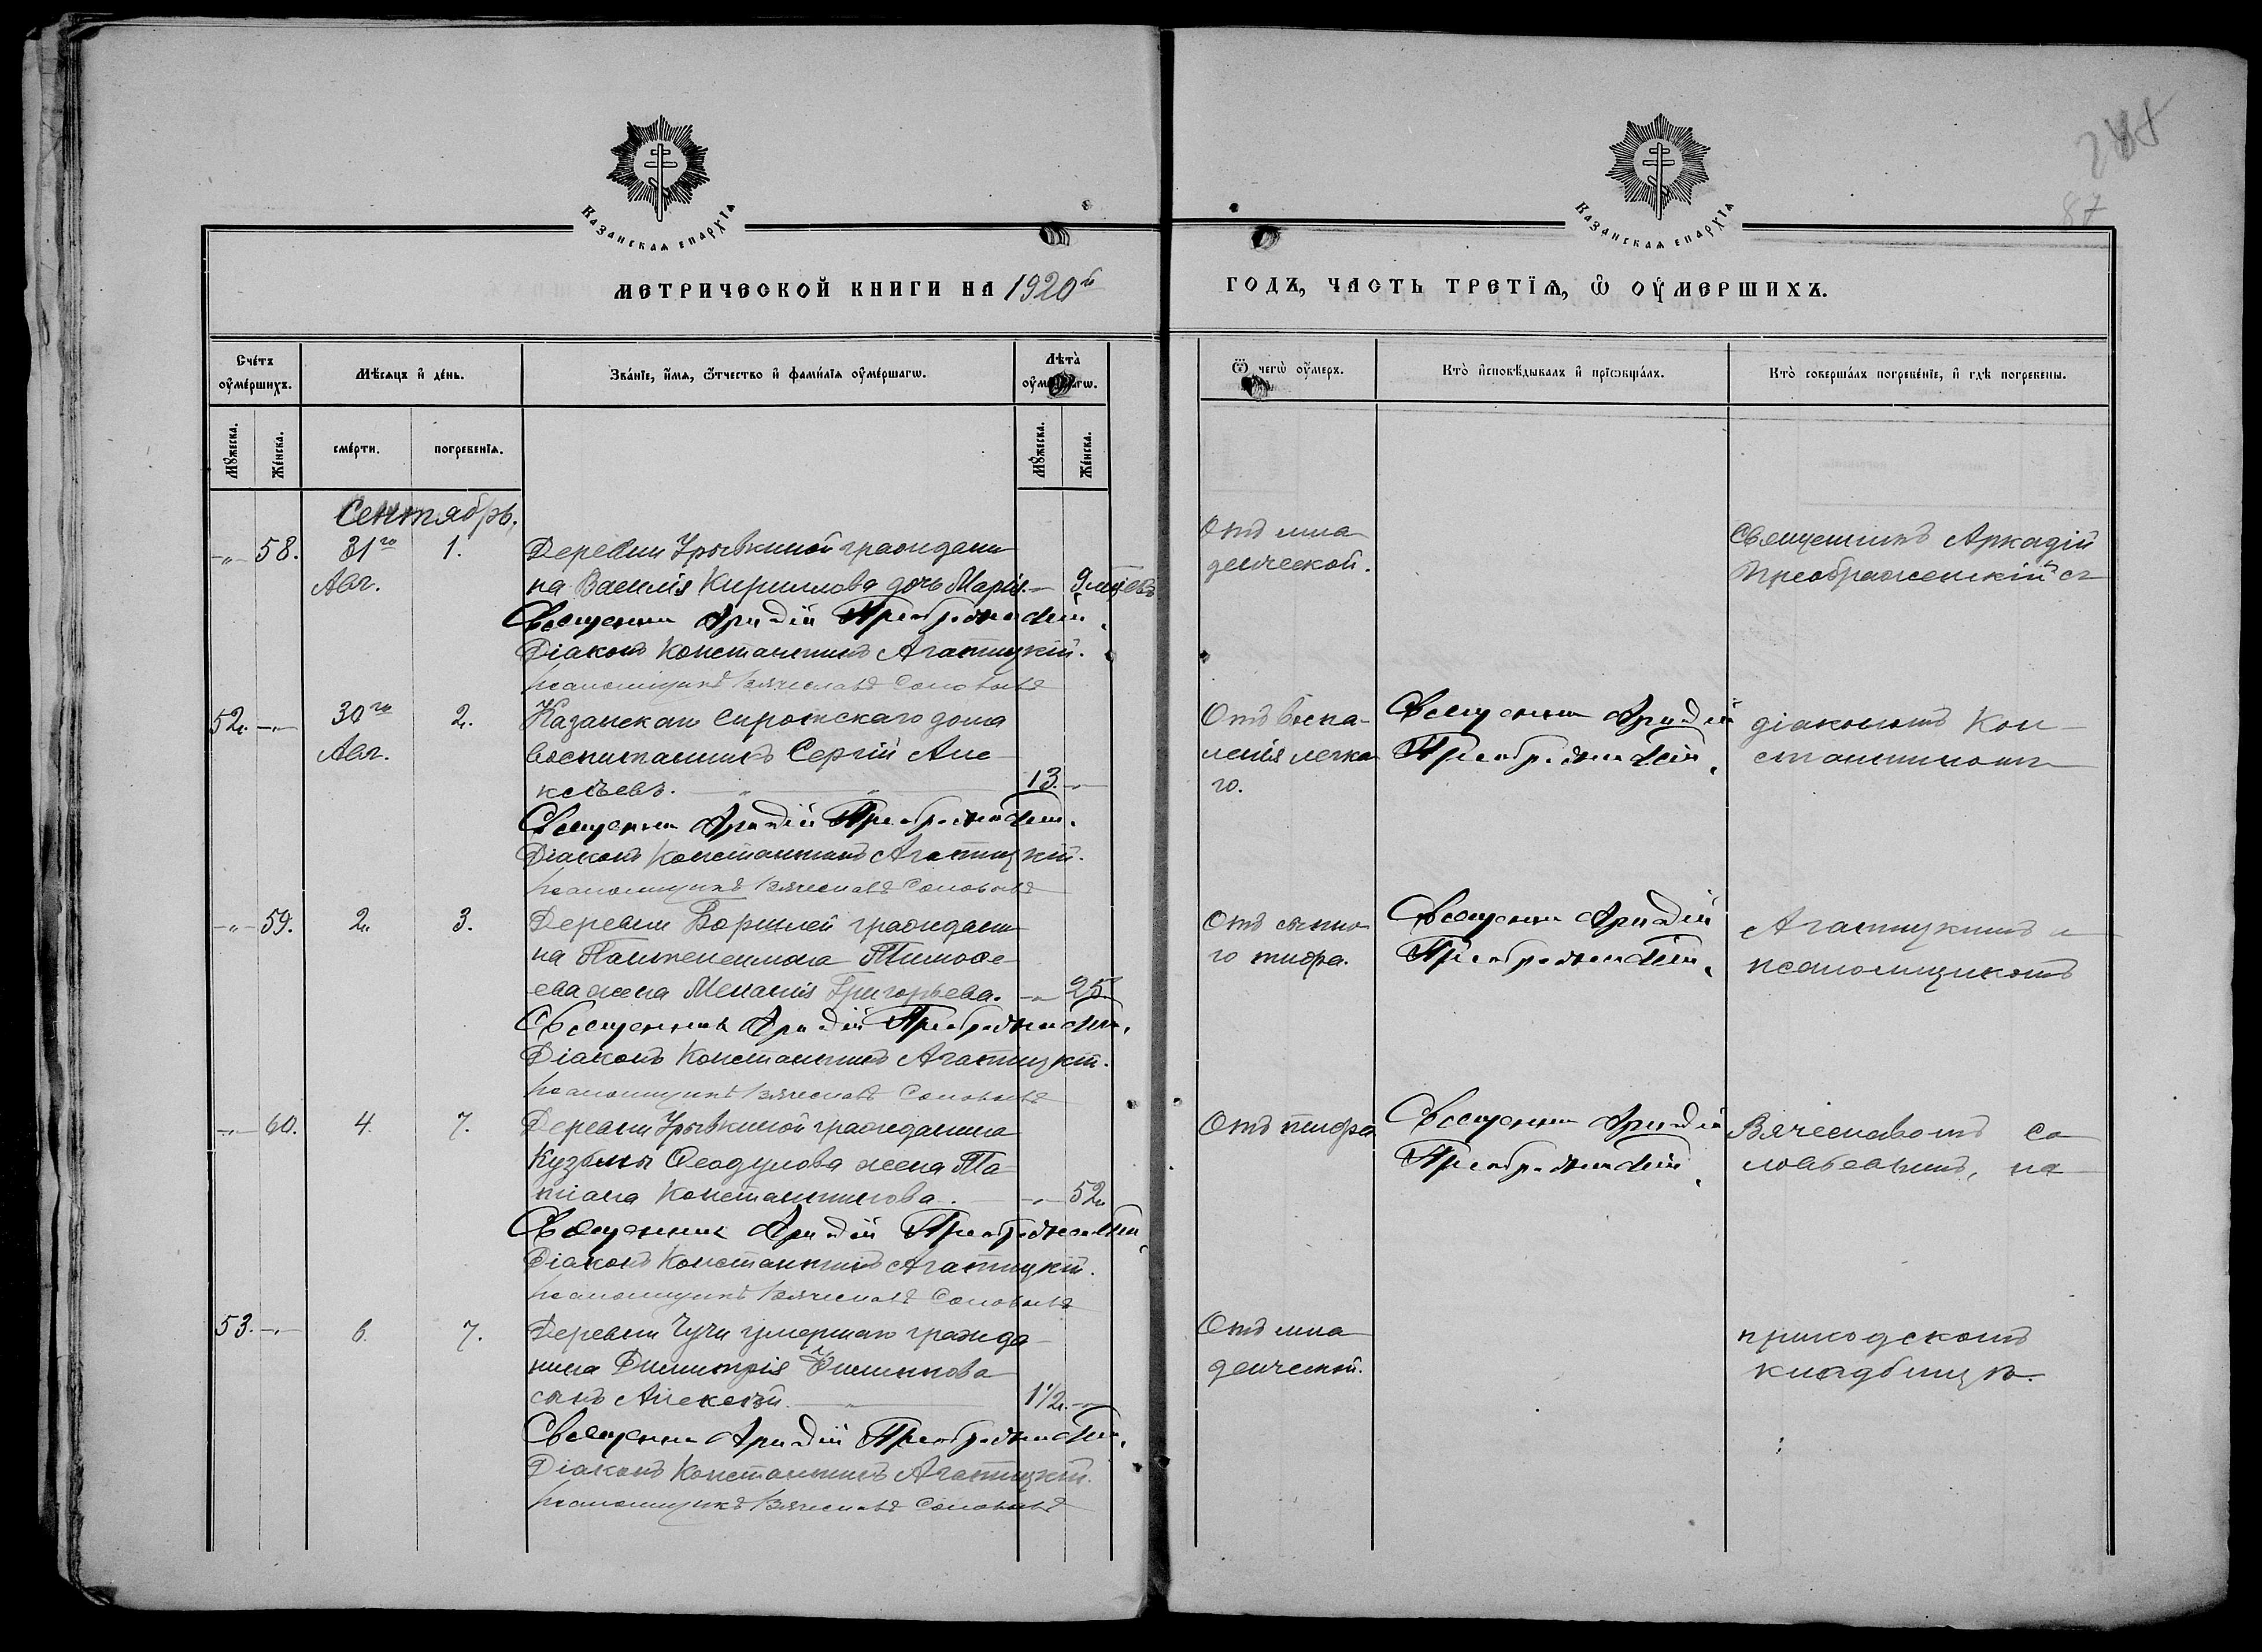 Казанская епархїя
Казанская епархїя
87
МЕТРИЧЕСКОЙ КНИГИ НА 1920й
ГОДЪ, ЧАСТЬ ТРЕТЇѦ, Ѡ ОУМЕРШИХЪ.
Счетъ оумершихъ.
Мѣсяцъ и день.
Званїе, имя, отчество и фамилїя оумершагѡ.
Лѣта оумершагѡ.
Ѿ чегѡ оумеръ.
Кто исповѣдывалъ и прїѡбщалъ.
Кто совершалъ погребенїе, и гдѣ погребены.
Мужеска.
Женска.
смерти.
погребенїя.
Мужеска.
Женска.
Сентябрь.
-"- 58. 31го 1. Деревни Урывкиной граждани
Авг. на Василія Кириллова дочь Марія. — 9 мѣсяцевъ
Священникъ Аркадій Преображенскій.
Діаконъ Константинъ Агатицкій.
Псаломщикъ Вячеславъ Соловьевъ
Отъ мла
денческой.
Священникъ Аркадій
Преображенскій съ
52. -"- 30го 2. Казанскаго Сиротскаго дома
Авг. воспитанникъ Сергій Але
ксѣевъ. 13. -"-
Священникъ Аркадій Преображенскій.
Діаконъ Константинъ Агатицкій.
Псаломщикъ Вячеславъ Соловьевъ
Отъ воспа-
ленія легка
го.
Священникъ Аркадій
Преображенскій.
діакономъ Кон-
стантиномъ
-"- 59. 2. 3. Деревни Боришей граждани
на Пантелеимона Тимофе
ева жена Меланія Григорьева. -"- 25
Священникъ Аркадій Преображенскій.
Діаконъ Константинъ Агатицкій.
Псаломщикъ Вячеславъ Соловьевъ
Отъ сыпно
го тифа.
Священникъ Аркадій
Преображенскій.
Агатицкимъ и
псаломщикомъ
-"- 60. 4. 7. Деревни Урывкиной гражданина
Кузьмы Ѳеодулова жена Та
тіана Константинова. -"- 52
Священникъ Аркадій Преображенскій.
Діаконъ Константинъ Агатицкій.
Псаломщикъ Вячеславъ Соловьевъ
Отъ тифа
Священникъ Аркадій
Преображенскій.
Вячеславомъ Со
ловьевымъ, на
53. -"- 6. 7. Деревни Чучи умершаго гражда
нина Димитрія Филиппова
сынъ Алексѣй. 1 1/2. -"-
Священникъ Аркадій Преображенскій.
Діаконъ Константинъ Агатицкій.
Псаломщикъ Вячеславъ Соловьевъ
Отъ мла
денческой.
приходскомъ
кладбищѣ.